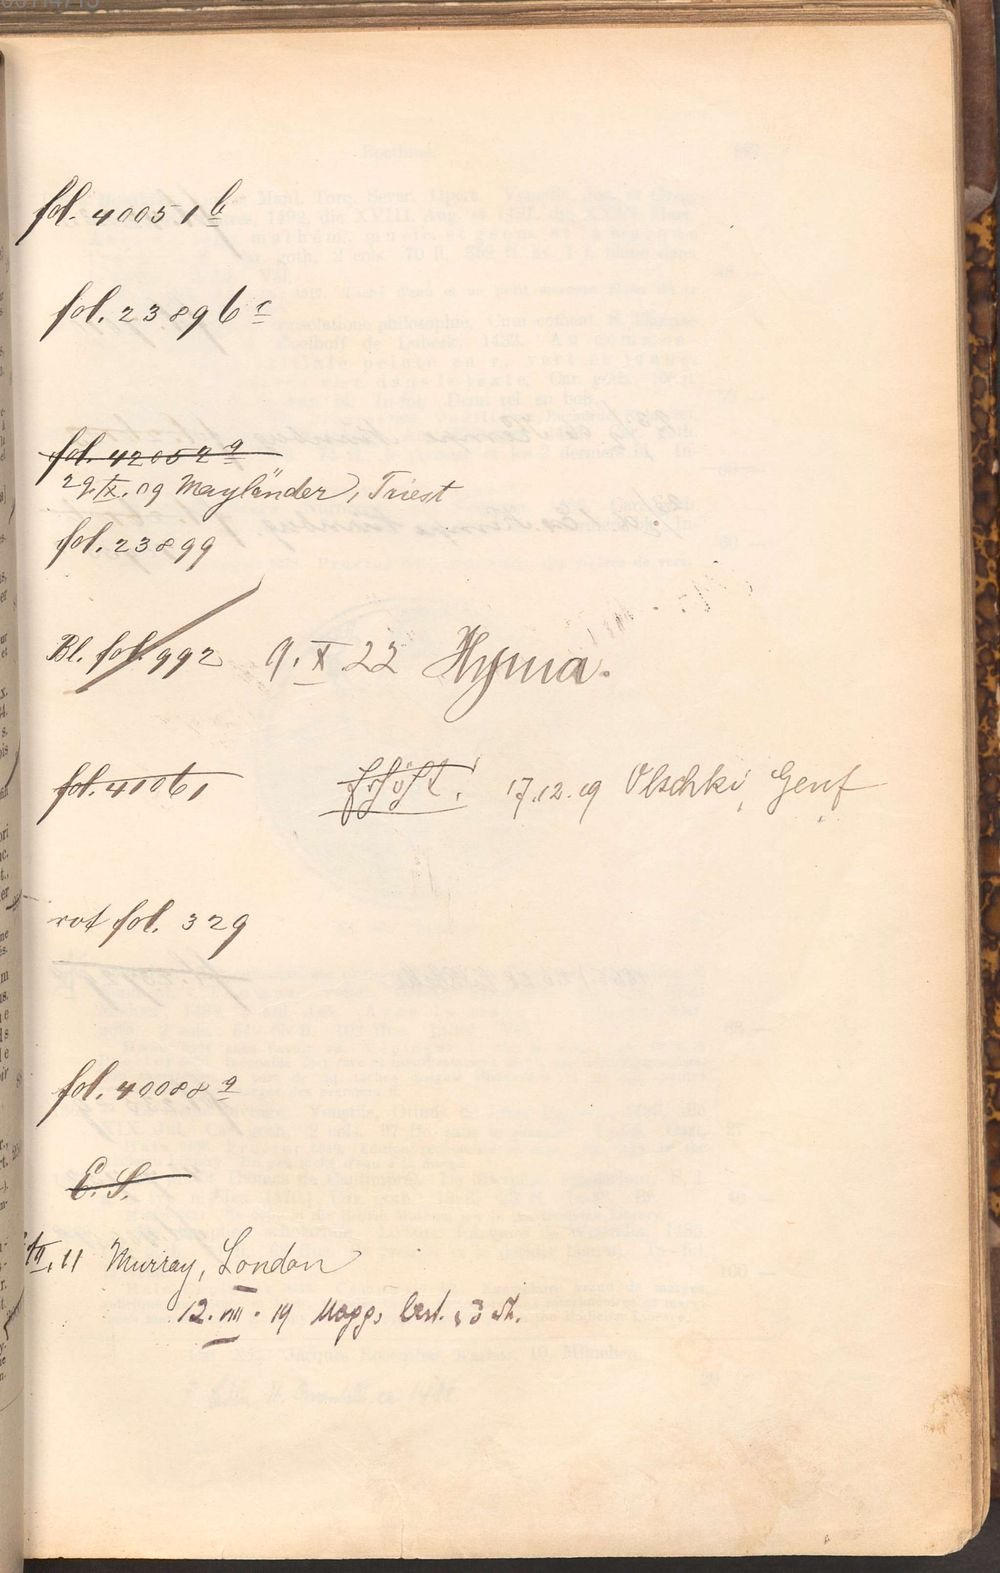 fol. 40051 b
fol. 23896 c
fol. 42052 a
29.IX.09 Mayländer, Triest
fol. 23899
Bl. fol. 992 9.X.22 Hyma.
fol. 41061 17.12.19 Olschki, Genf
rot fol. 329
fol. 40088 a
E. S.
11 Murray, London
12. VIII. 19 Maggs best.